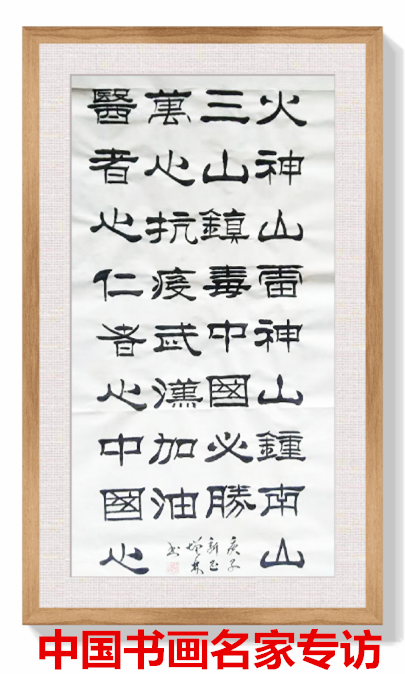 火神山雷神山鍾南山
三山鎮毒中國必勝
萬心抗疫武漢加油
醫者心仁者心中國心
庚子
新正
书
中国书画名家专访